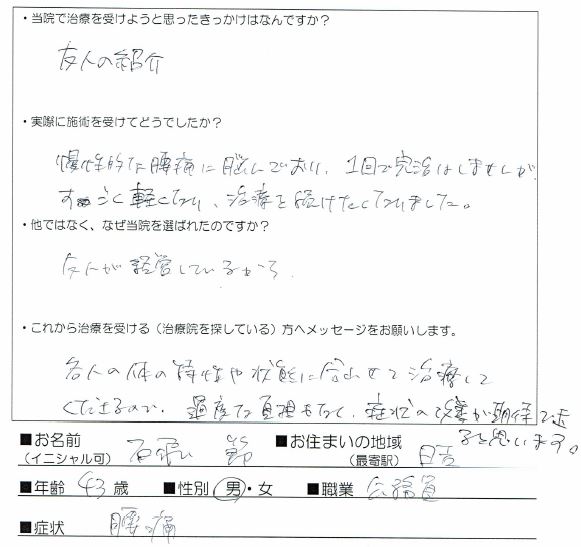 ・当院で治療を受けようと思ったきっかけはなんですか？
友人の紹介
・実際に施術を受けてどうでしたか？
慢性的な腰痛に悩んでおり、1回で完治はしませんが、
すごく軽くなり、治療を続けたくなりました。
・他ではなく、なぜ当院を選ばれたのですか？
友人が経営しているから
・これから治療を受ける（治療院を探している）方へメッセージをお願いします。
各人の体の特性や状態に合わせて治療して
くださるので、過度な負担もなく、症状の改善が期待でき
ると思います。
■お名前（イニシャル可） ■お住まいの地域（最寄駅） 日吉
■年齢 43 歳 ■性別 男・女 ■職業 公務員
■症状 腰痛